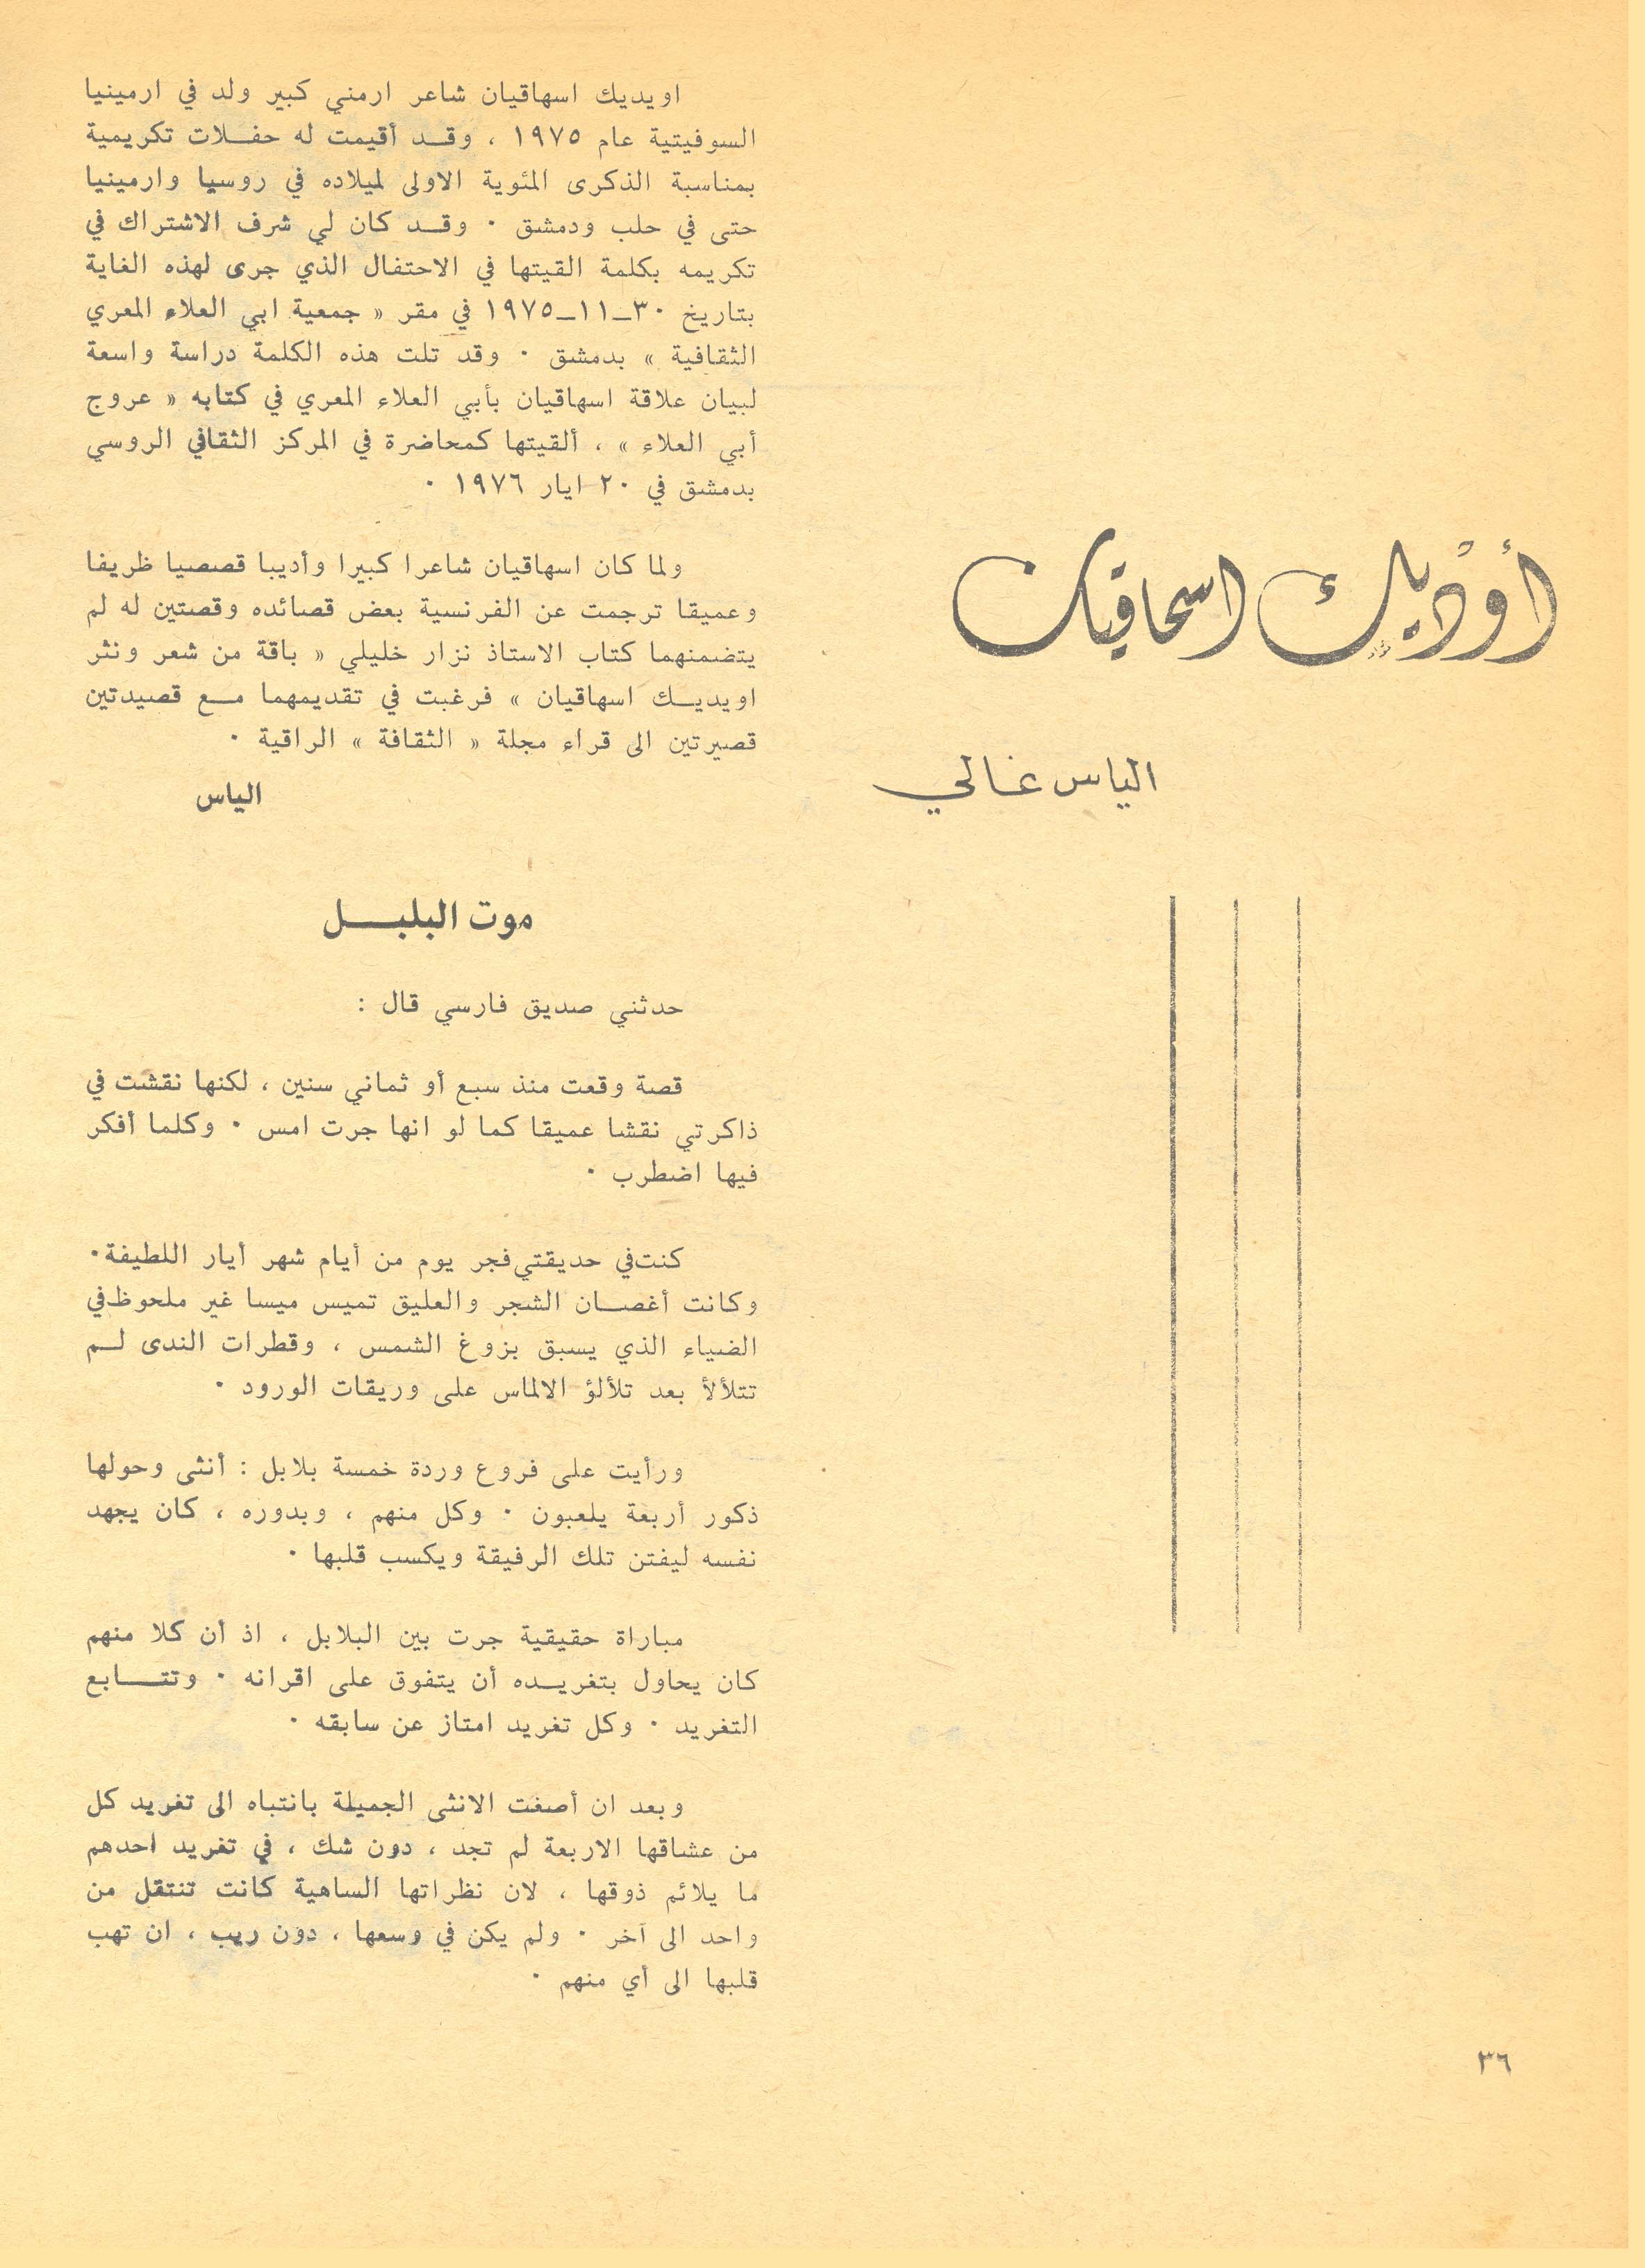 أوديك اسحاقيان
الياس غالي
اويديك اسهاقيان شاعر ارمني كبير ولد في ارمينيا
السوفيتية عام ١٩٧٥ ، وقد أقيمت له حفلات تكريمية
بمناسبة الذكرى المئوية الاولى لميلاده في روسيا وارمينيا
حتى في حلب ودمشق ٠ وقد كان لي شرف الاشتراك في
تكريمه بكلمة القيتها في الاحتفال الذي جرى لهذه الغاية
بتاريخ ٣٠ــ١١ــ١٩٧٥ في مقر « جمعية ابي العلاء المعري
الثقافية » بدمشق ٠ وقد تلت هذه الكلمة دراسة واسعة
لبيان علاقة اسهاقيان بأبي العلاء المعري في كتابه « عروج
أبي العلاء » ، ألقيتها كمحاضرة في المركز الثقافي الروسي
بدمشق في ٢٠ ايار ١٩٧٦ ٠
ولما كان اسهاقيان شاعرا كبيرا وأديبا قصصيا ظريفا
وعميقا ترجمت عن الفرنسية بعض قصائده وقصتين له لم
يتضمنهما كتاب الاستاذ نزار خليلي « باقة من شعر ونثر
اويديك اسهاقيان » فرغبت في تقديمهما مع قصيدتين
قصيرتين الى قراء مجلة « الثقافة » الراقية ٠
الياس
موت البلبل
حدثني صديق فارسي قال :
قصة وقعت منذ سبع أو ثماني سنين ، لكنها نقشت في
ذاكرتي نقشا عميقا كما لو انها جرت امس ٠ وكلما أفكر
فيها اضطرب ٠
كنت في حديقتي فجر يوم من أيام شهر أيار اللطيفة٠
وكانت أغصان الشجر والعليق تميس ميسا غير ملحوظ في
الضياء الذي يسبق بزوغ الشمس ، وقطرات الندى لم
تتلألأ بعد تلألؤ الالماس على وريقات الورود ٠
ورأيت على فروع وردة خمسة بلابل : أنثى وحولها
ذكور أربعة يلعبون ٠ وكل منهم ، وبدوره ، كان يجهد
نفسه ليفتن تلك الرفيقة ويكسب قلبها ٠
مباراة حقيقية جرت بين البلابل ، اذ أن كلا منهم
كان يحاول بتغريده أن يتفوق على اقرانه ٠ وتتابع
التغريد ٠ وكل تغريد امتاز عن سابقه ٠
وبعد ان أصغت الانثى الجميلة بانتباه الى تغريد كل
من عشاقها الاربعة لم تجد ، دون شك ، في تغريد احدهم
ما يلائم ذوقها ، لان نظراتها الساهية كانت تنتقل من
واحد الى آخر ٠ ولم يكن في وسعها ، دون ريب ، ان تهب
قلبها الى أي منهم ٠
٣٦